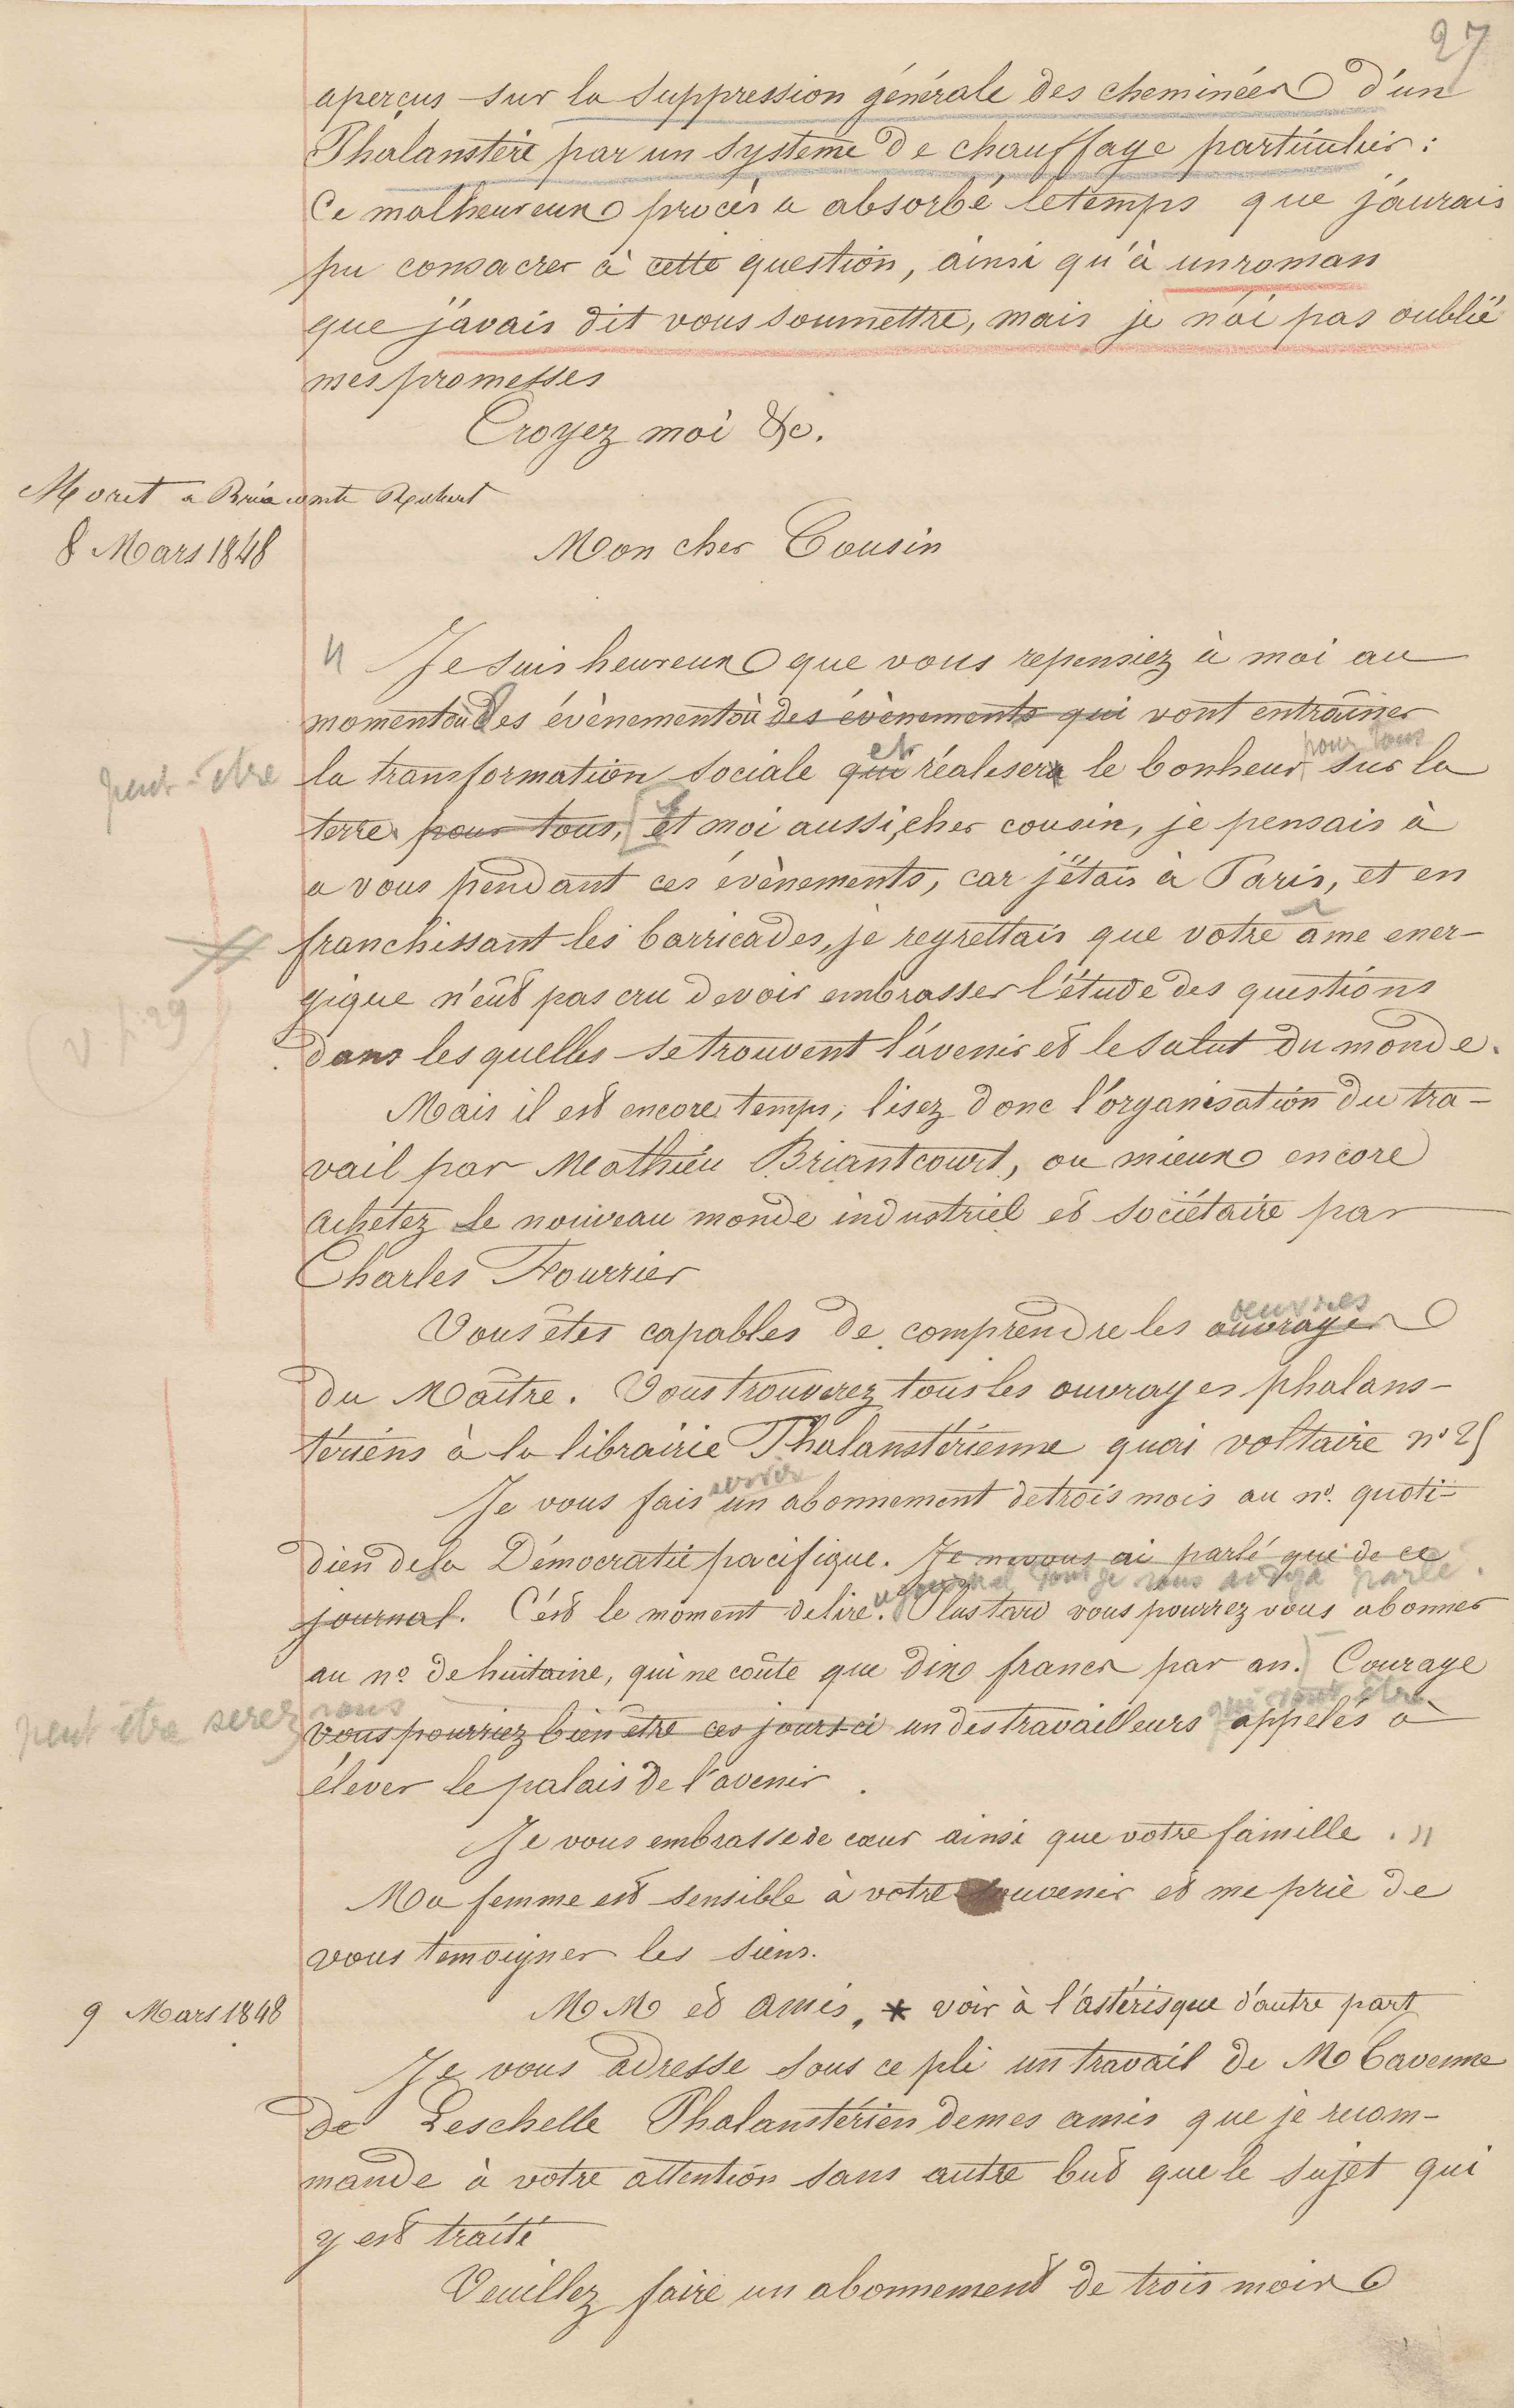 27
aperçus sur la suppression générale des cheminées d'un
Phalanstère par un système de chauffage particulier :
Ce malheureux procès a absorbé le temps que j'aurais
pu consacrer à cette question, ainsi qu'à un roman
que j'avais dit vous soumettre, mais je n'ai pas oublié
mes promesses
Croyez moi &c.
Moret a Brie comte Robert
8 Mars 1848
Mon cher Cousin
" Je suis heureux que vous repensiez à moi au
moment où des évènements où des évènements qui vont entraîner
peut-être la transformation sociale qui et réalisera le bonheur pour tous sur la
terre pour tous, et moi aussi, cher cousin, je pensais à
a vous pendant ces évènements, car j'étais à Paris, et en
franchissant les barricades, je regrettais que votre âme ener-
gique n'eût pas cru devoir embrasser l'étude des questions
V p. 29
dans lesquelles se trouvent l'avenir et le salut du monde.
Mais il est encore temps, lisez donc l'organisation du tra-
vail par Mathieu Briantcourt, ou mieux encore
achetez le nouveau monde industriel et sociétaire par
Charles Fourrier
Vous êtes capables de comprendre les ouvrages œuvres
du Maître. Vous trouverez tous les ouvrages phalans-
tériens à la librairie Phalanstérienne quai voltaire n° 25
Je vous fais servir un abonnement de trois mois au n°. quoti-
dien de la Démocratie pacifique. Je ne vous ai parlé que de ce
journal dont je vous ai déjà parlé.
journal. C'est le moment de lire. Plus tard vous pourrez vous abonner
au n° de huitaine, qui ne coûte que dix francs par an. Courage
peut être serez vous
vous pourriez bien être ces jours-ci un des travailleurs qui sont être appelés à
élever le palais de l'avenir.
Je vous embrasse de cœur ainsi que votre famille. "
Ma femme est sensible à votre souvenir et me prie de
vous temoigner les siens.
9 Mars 1848
M M et amis, * voir à l'astérisque d'autre part
Je vous adresse sous ce pli un travail de M Cavenne
de Leschelle Phalanstérien de mes amis que je recom-
mande à votre attention sans autre but que le sujet qui
y est traité
Veuillez faire un abonnement de trois mois